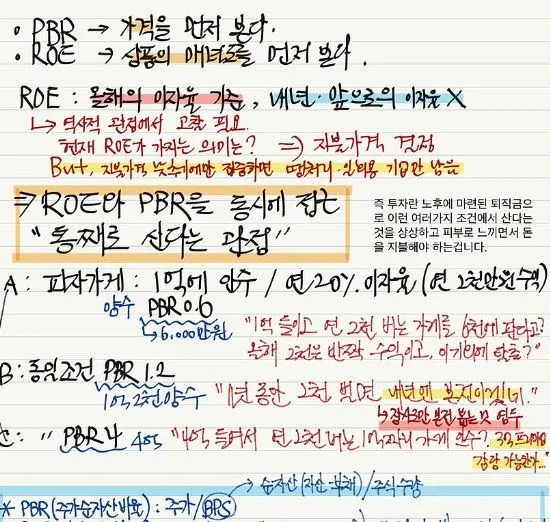 • PBR → 가격을 먼저 본다.
• ROE → 상품의 매력도를 먼저 본다.
ROE : 올해의 이자율 기준, 내년·앞으로의 이자율 X
↳ 역사적 관점에서 고찰 필요.
현재 ROE가 가지는 의미는? ⇒ 지불가격 결정
But, 지불가격 낮추기에만 집중하면 기업만 남음
⇒ ROE와 PBR을 동시에 접근
"통째로 산다는 관점"
즉 투자란 노후에 마련된 퇴직금으
로 이런 여러가지 조건에서 산다는
것을 상상하고 피부로 느끼면서 돈
을 지불해야 하는겁니다.
A : 피자가게 : 1억에 인수 / 연 20% 이자율 (연 2천만원 수익)
양수 PBR 0.6
↳ 6,000만원
"1억 들이고 연 2천 버는 가게를 6천에 판다고?
올해 2천은 반짝 수익이고, 이거리에 망조?"
B : 동일조건 PBR 1.2
1억 2천 양수
"1년 동안 2천 벌면 내년엔 본전이겠네."
↳ 장사로만 본전 뽑는 것 염두
〃 PBR 4 4억 "4억 들여서 연 2천 버는 1억짜리 가게 인수? 3억 프리미엄
감당 가능한가..."
→ 순자산 (자산-부채) / 주식수량
* PBR (주가순자산비율) : 주가 / BPS